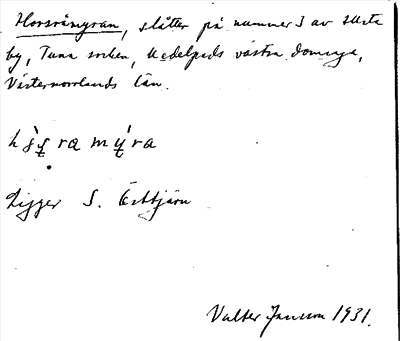 Horsråmyran, slåtter på nummer 3 av
by, Tuna socken, Medelpads västra domsaga,
Västernorrlands län.
ra mýra
Ligger S.
Valter Jansson 1931.